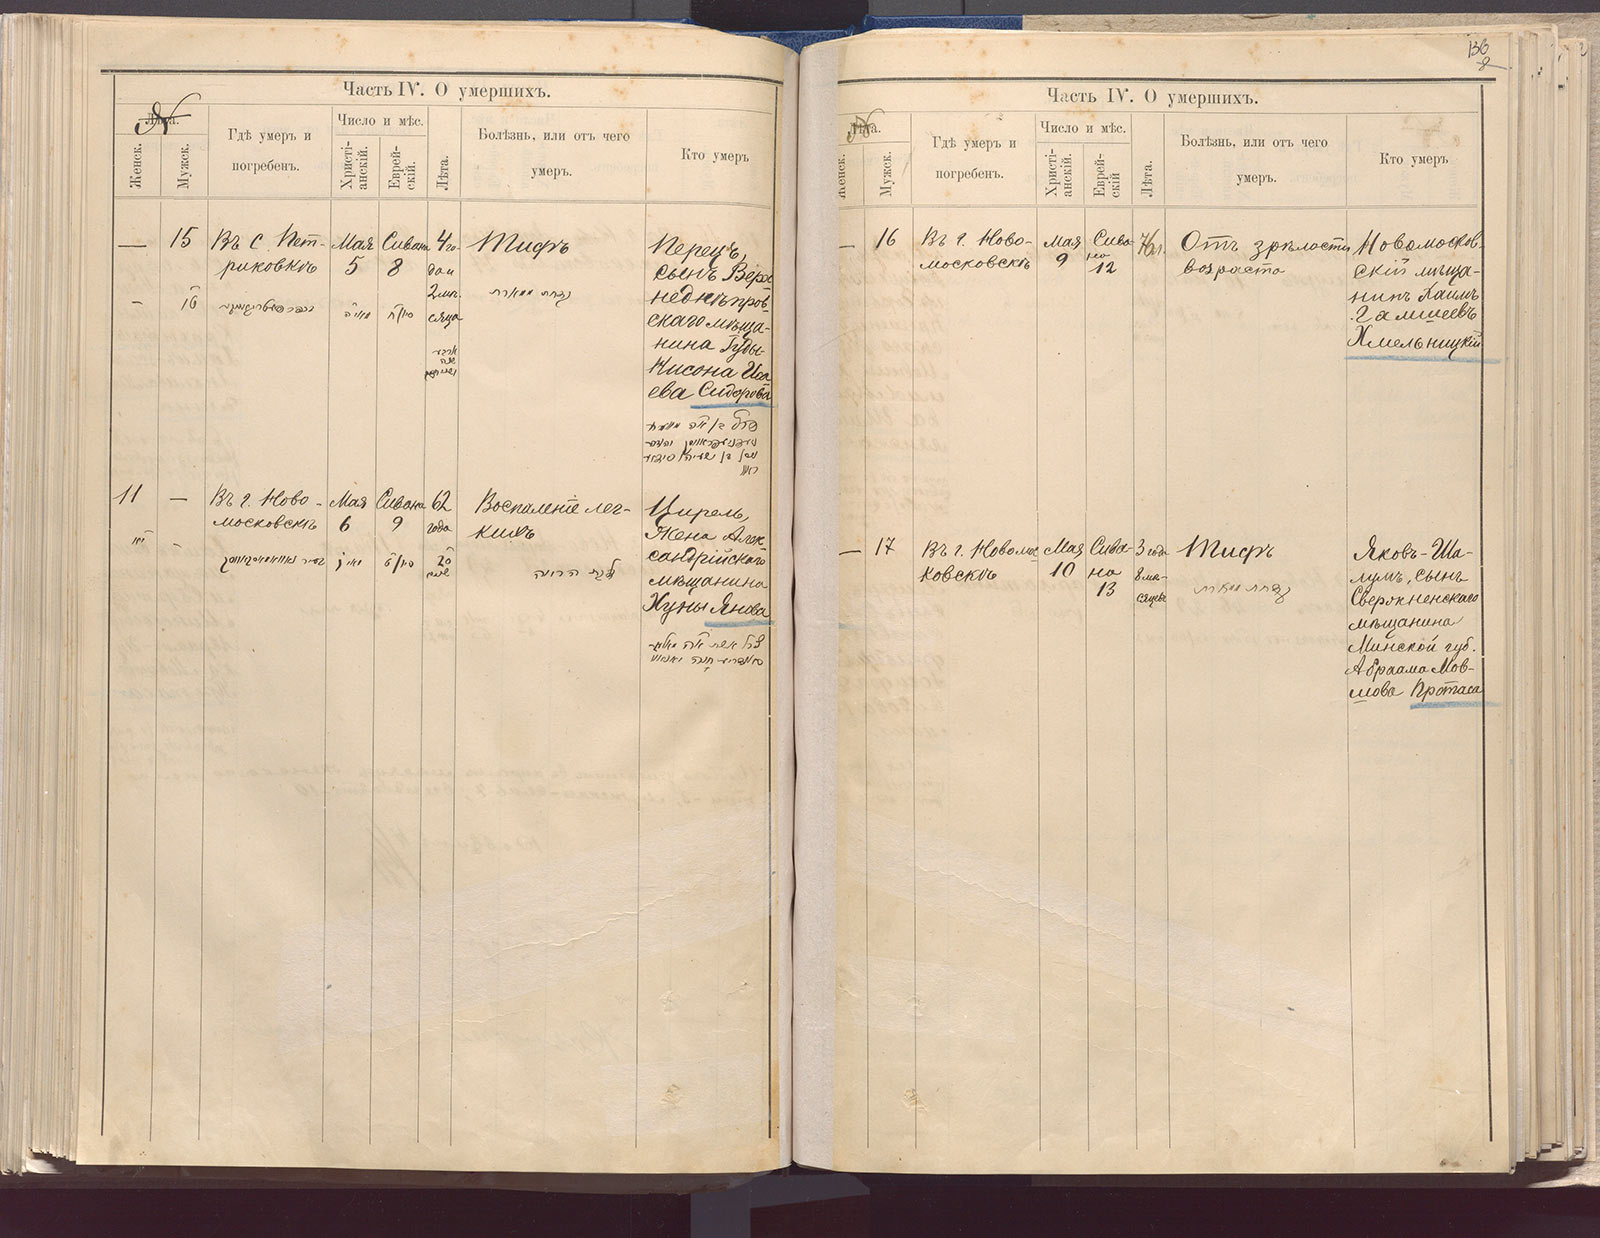 Часть IV. О умершихъ.
Лѣта.
№
Женск.
Мужск.
Гдѣ умеръ и
погребенъ.
Число и мѣс.
Христі-
анскій.
Еврей-
скій.
Лѣта.
Болѣзнь, или отъ чего
умеръ.
Кто умеръ
—
15
Въ с. Пет-
риковкѣ
Мая
5
Сивана
8
4 го-
да и
2 мѣ-
сяца
Тифъ
קדחת
Перецъ,
сынъ Верх
недньпров
скаго мѣща-
нина Гуды-
Кисона Иса
ева Сидорова
11
—
Въ г. Ново-
московскѣ
Мая
6
Сивана
9
62
года
Воспаленіе лег-
кихъ
דלקת הריאה
Цирель,
жена Алек
сандрійскаго
мѣщанина
Хуны Янова
136
Часть IV. О умершихъ.
Лѣта.
№
Женск.
Мужск.
Гдѣ умеръ и
погребенъ.
Число и мѣс.
Христі-
анскій.
Еврей-
скій
Лѣта.
Болѣзнь, или отъ чего
умеръ.
Кто умеръ
—
16
Въ г. Ново-
московскѣ
Мая
9
Сива-
на
12
Отъ зрѣлости
возраста
Новомосков-
скій мѣща-
нинъ Хаимъ
Хмельницкій
—
17
Въ г. Новомос
ковскѣ
Мая
10
Сива-
на
13
3 года
8 мѣ-
сяцевъ
Тифъ
קדחת
Яковъ-Ша-
лумъ, сынъ
Свержненскаго
мѣщанина
Минской губ.
Абраама Мов-
шова Протаса